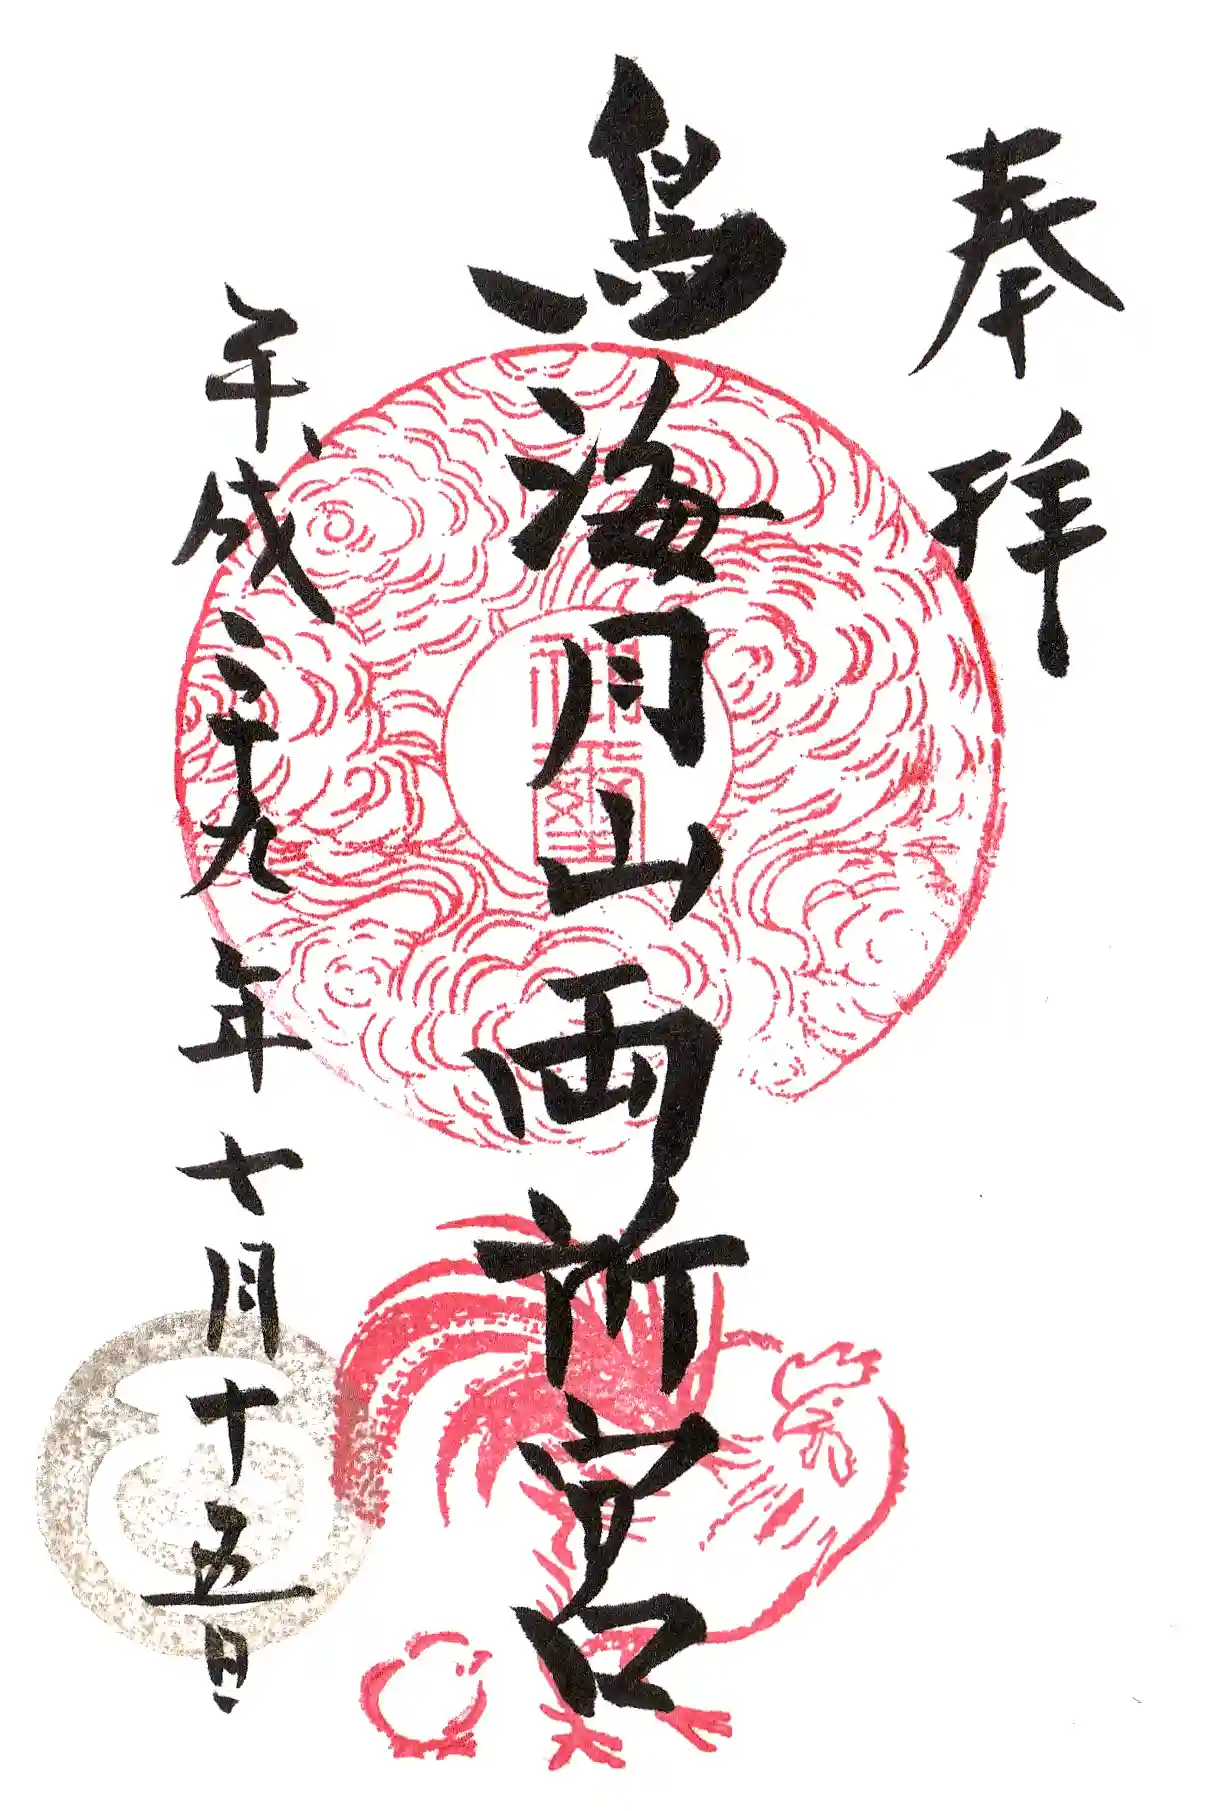 奉拝
鳥海月山両所宮
平成二十九年十月十五日